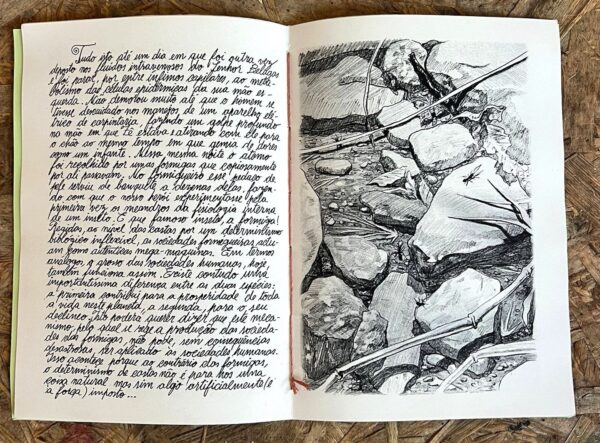 Tudo isto até um dia em que foi outra vez
deposto nos fluidos intravenosos do Senhor Belegas
e foi parar, por entre ínfimos capilares, ao meta-
bolismo das células epidérmicas da sua mão es-
querda. Não demorou muito até que o homem se
tivesse descuidado nos manejos de um aparelho elé-
trico de carpintaria, fazendo um golpe profundo
na mão em que tê estava e atirando com ele para
o chão ao mesmo tempo em que gemia de dores
como um infante. Nessa mesma noite o átomo
foi recolhido por umas formigas que copiosamente
por ali passavam. No formigueiro esse pedaço de
pele serviu de banquete a dezenas delas, fazen-
do com que o nosso herói experimentasse pela
primeira vez os meandros da fisiologia interna
de um insecto. E que famoso insecto, a formiga!
Regidas ao nível das castas por um determinismo
biológico inflexível, as sociedades formigueiras actu-
am como autênticas mega-máquinas. Em termos
análogos, o grosso das sociedades humanas, hoje,
também funciona assim. Existe contudo uma
importantíssima diferença entre as duas espécies:
a primeira contribui para a prosperidade de toda
a vida neste planeta, a segunda, para o seu
declínio. Isto poderá querer dizer que este meca-
nismo, pelo qual se rege a produção das socieda-
des das formigas, não pode, sem consequências
desastrosas, ser aplicado às sociedades humanas.
Isso acontece porque ao contrário das formigas,
o determinismo de castas não é para nós uma
coisa natural mas sim algo artificialmente (e
à força) imposto...